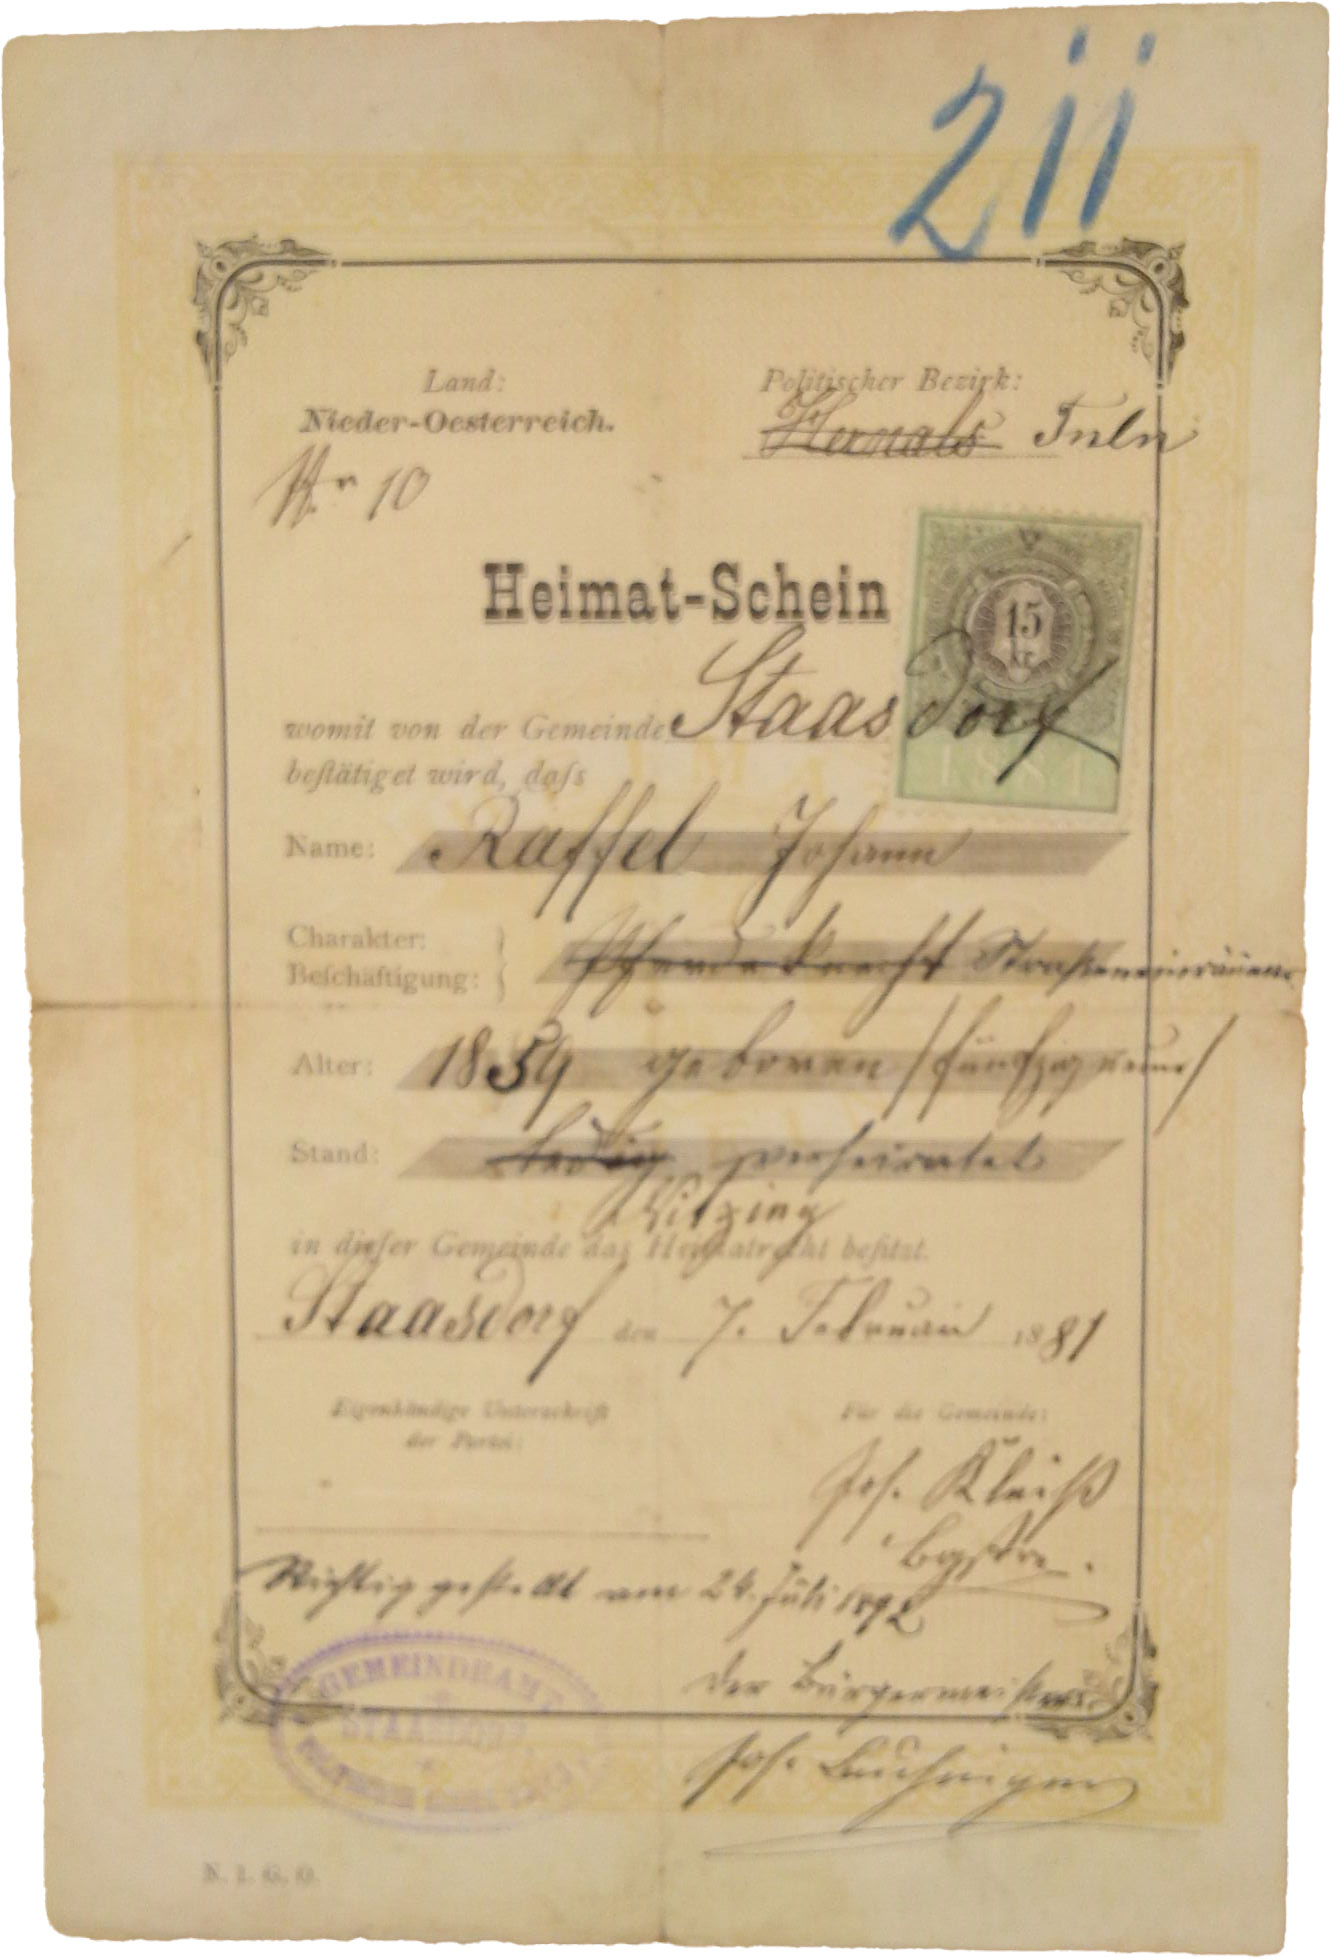 211
Land: Politischer Bezirk:
Nieder-Oesterreich. Hernals Tuln
Nr 10
Heimat-Schein
15
kr
womit von der Gemeinde Staasdorf
1881
beſtätiget wird, daſs
Name: Raffel Johann
Charakter:
Beſchäftigung: Pferdeknecht Straßeneinräumer
Alter: 1859 geboren / fünfzig neun /
Stand: ledig verheiratet
Sitzing
in dieſer Gemeinde das Heimatrecht beſitzt.
Staasdorf den 7. Februar 1881
Eigenhändige Unterschrift Für die Gemeinde:
der Partei:
Jos. Kleiß
Bgstr.
Richtig gestellt am 24. Juli 1892
Der Bürgermeister
Jos.
GEMEINDEAMT
STAASDORF
N. I. G. O.